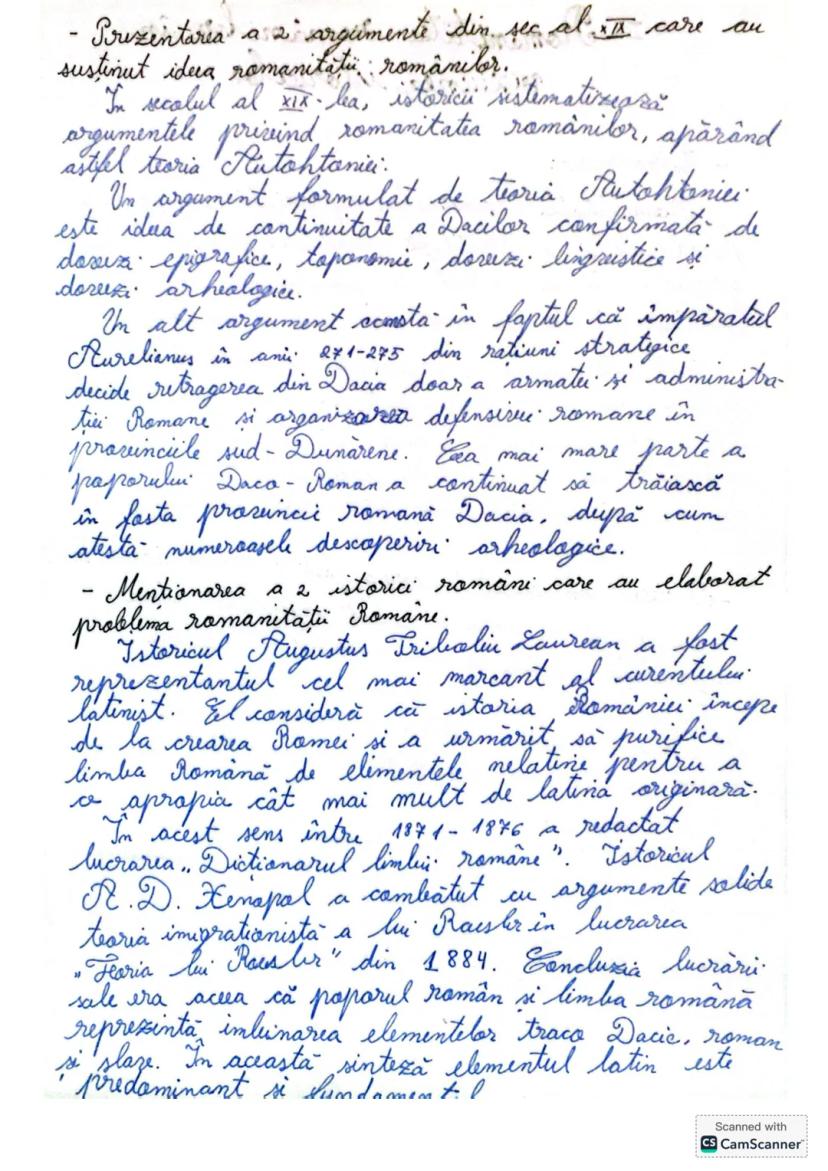 - Prezentarea a 2 argumente din sec al XIX care au
susținut ideea romanității românilor.
În secolul al XIX-lea, istoricii sistematizează
argumentele privind romanitatea românilor, apărând
astfel teoria Autohtoniei.
Un argument formulat de teoria Autohtoniei
este ideea de continuitate a Dacilor confirmată de
dovezi epigrafice, toponomie, dovezi lingvistice și
dovezi arheologice.
Un alt argument constă în faptul că împăratul
Aurelianus în anii 271-275 din rațiuni strategice
decide retragerea din Dacia doar a armatei și administra-
ției Romane si organizarea defensivei romane în
provinciile sud-Dunărene. Cea mai mare parte a
poporului Daco-Roman a continuat să trăiască
în fosta provincie romană Dacia, după cum
atestă numeroasele descoperiri arheologice.
- Menționarea a 2 istorici români care au elaborat
problema romanității Române.
Istoricul Augustus Treboliu Laurean a fost
reprezentantul cel mai marcant al curentului
latinist. El consideră că istoria României începe
de la crearea Romei si a urmărit să purifice
limba Română de elementele nelatine pentru a
o apropia cât mai mult de latina originară.
În acest sens între 1871-1876 a redactat
lucrarea „Dicționarul limbii române". Istoricul
A.D. Xenopol a combătut cu argumente solide
teoria imigraționistă a lui Roesler în lucrarea
„Teoria lui Roesler" din 1884. Concluzia lucrării
sale era aceea că poporul român și limba română
reprezintă îmbinarea elementelor traco Dacic, roman
și slave. În această sinteză elementul latin este
predominant si fundamental
Scanned with
CS CamScanner